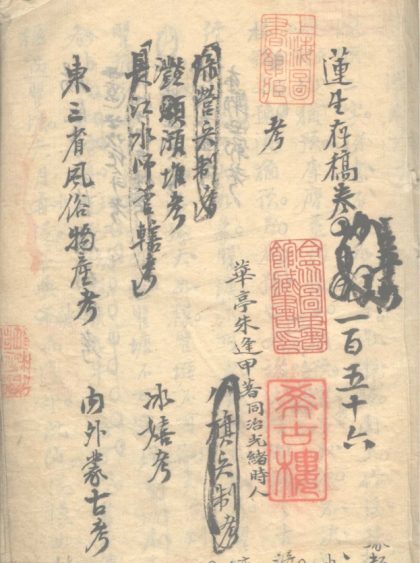 蓮生存稿卷
一百五十六
上海圖書館
合眾圖書館藏書印
希古樓
考
華亭朱逢甲著同治光緒時人
綠營兵制考
八旗兵制考
堆考
長江水師營轄考
冰嬉考
東三省風俗物產考
内外蒙古考